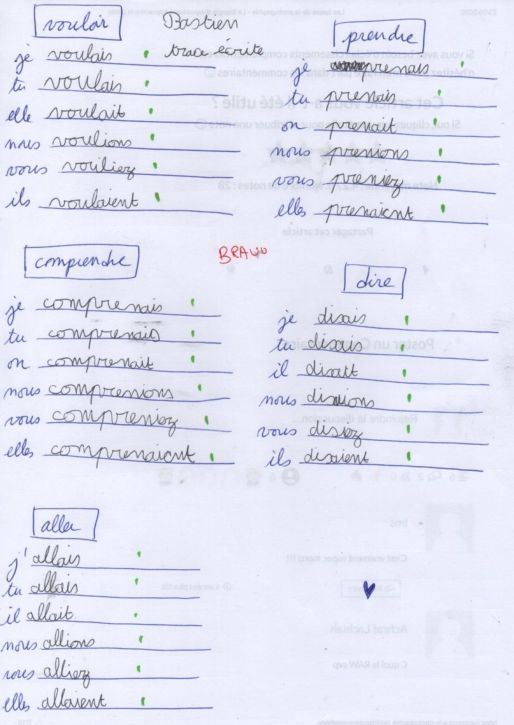 vouloir
Bastien
trace écrite
je voulais
tu voulais
elle voulait
nous voulions
vous vouliez
ils voulaient
prendre
je prenais
tu prenais
on prenait
nous prenions
vous preniez
elles prenaient
BRAVO
comprendre
je comprenais
tu comprenais
on comprenait
nous comprenions
vous compreniez
elles comprenaient
dire
je disais
tu disais
il disait
nous disions
vous disiez
ils disaient
aller
j'allais
tu allais
il allait
nous allions
vous alliez
elles allaient